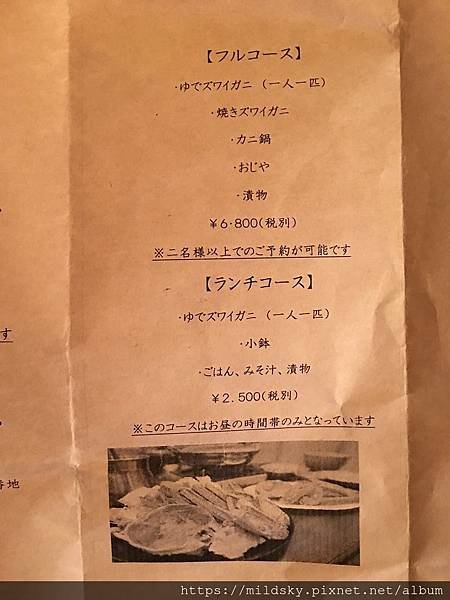 【フルコース】
・ゆでズワイガニ（一人一匹）
・焼きズワイガニ
・カニ鍋
・おじや
・漬物
￥6・800(税別)
※二名様以上でのご予約が可能です
【ランチコース】
・ゆでズワイガニ（一人一匹）
・小鉢
・ごはん、みそ汁、漬物
￥2.500(税別)
※このコースはお昼の時間帯のみとなっています
す
番地
https://mildsky.pixnet.net/album